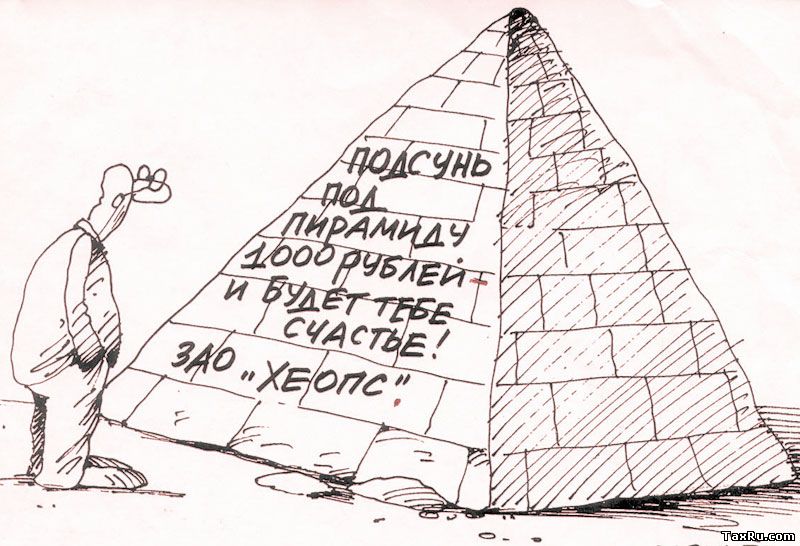 ПОДСУНЬ
ПОД
ПИРАМИДУ
1000 РУБЛЕЙ -
И БУДЕТ ТЕБЕ
СЧАСТЬЕ!
ЗАО „ХЕОПС".
TaxRu.com